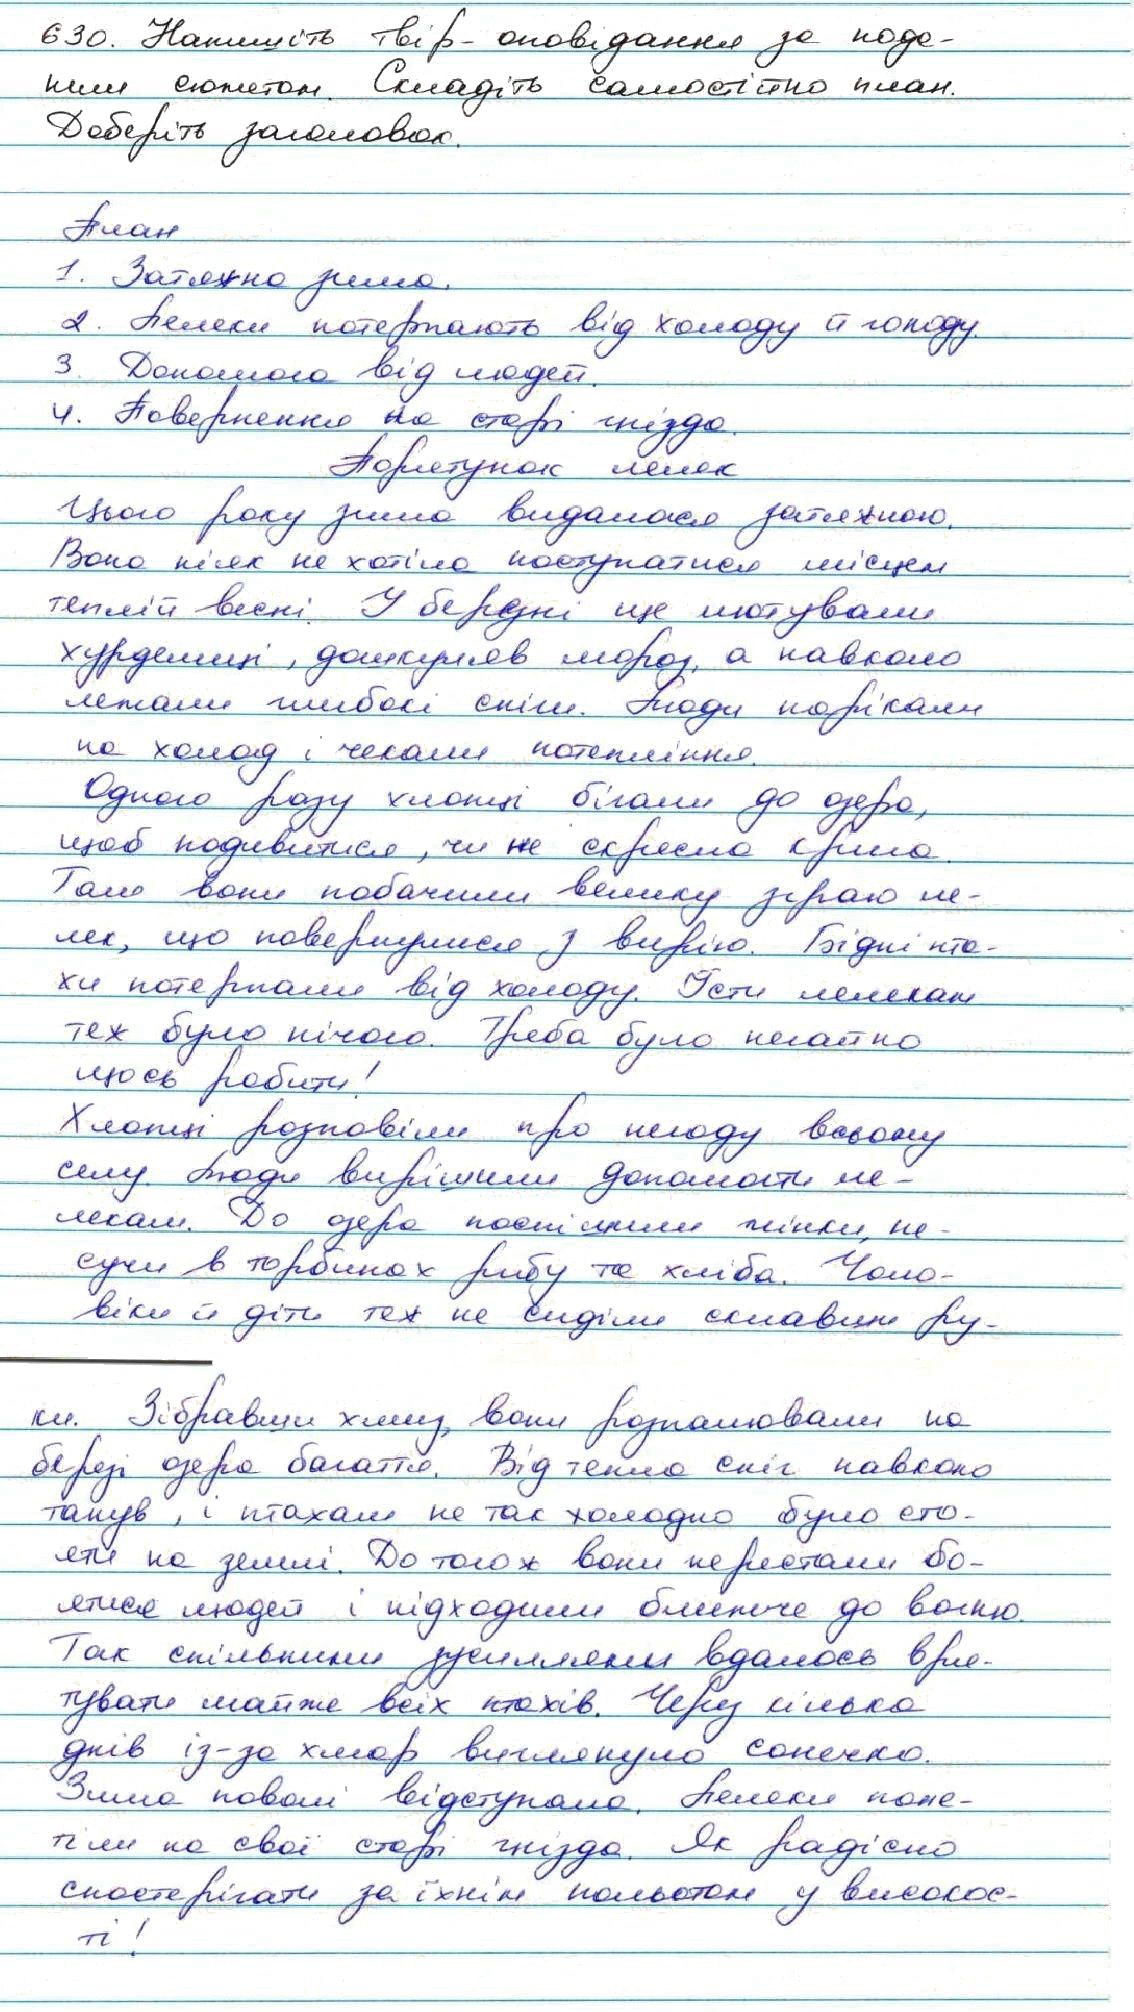 630. Напишіть твір-оповідання за пода-
ним сюжетом. Складіть самостійно план.
Доберіть заголовок.
План
1. Затяжна зима.
2. Лелеки потерпають від холоду й голоду.
3. Допомога від людей.
4. Повернення на старі гнізда.
Порятунок лелек
Цього року зима видалася затяжною.
Вона ніяк не хотіла поступатися місцем
теплій весні. У березні ще лютували
хурделиці, дошкуляв мороз, а навколо
лежали глибокі сніги. Люди нарікали
на холод і чекали потепління.
Одного разу хлопці бігали до озера,
щоб подивитися, чи не скресла крига.
Там вони побачили велику зграю ле-
лек, що повернулися з вирію. Бідні пта-
хи потерпали від холоду. Їсти лелекам
теж було нічого. Треба було негайно
щось робити!
Хлопці розповіли про негоду всьому
селу. Люди вирішили допомогти ле-
лекам. До озера поспішили жінки, не-
сучи в торбинах рибу та хліба. Чоло-
віки й діти теж не сиділи склавши ру-
ки. Зібравши хмиз, вони розпалювали на
березі озера багаття. Від тепла сніг навколо
танув, і птахам не так холодно було сто-
яти на землі. До того ж вони перестали бо-
ятися людей і підходили ближче до вогню.
Так спільними зусиллями вдалось вря-
тувати майже всіх птахів. Через кілька
днів із-за хмар виглянуло сонечко.
Зима поволі відступала. Лелеки поле-
тіли на свої старі гнізда. Як радісно
спостерігати за їхнім польотом у високос-
ті!